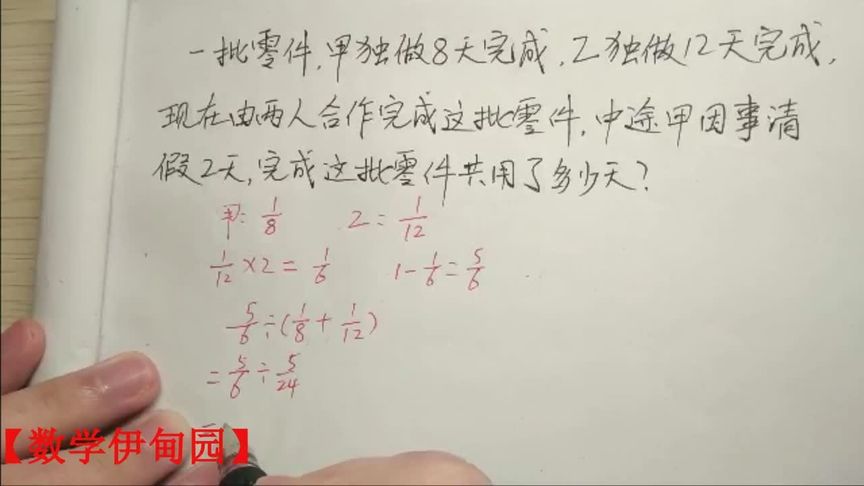 一批零件,甲独做8天完成,乙独做12天完成,
现在由两人合作完成这批零件,中途甲因事请
假2天,完成这批零件共用了多少天?
甲: 1/8 乙= 1/12
1/12×2=1/6 1-1/6=5/6
5/6÷(1/8+1/12)
=5/6÷5/24
=
【数学伊甸园】